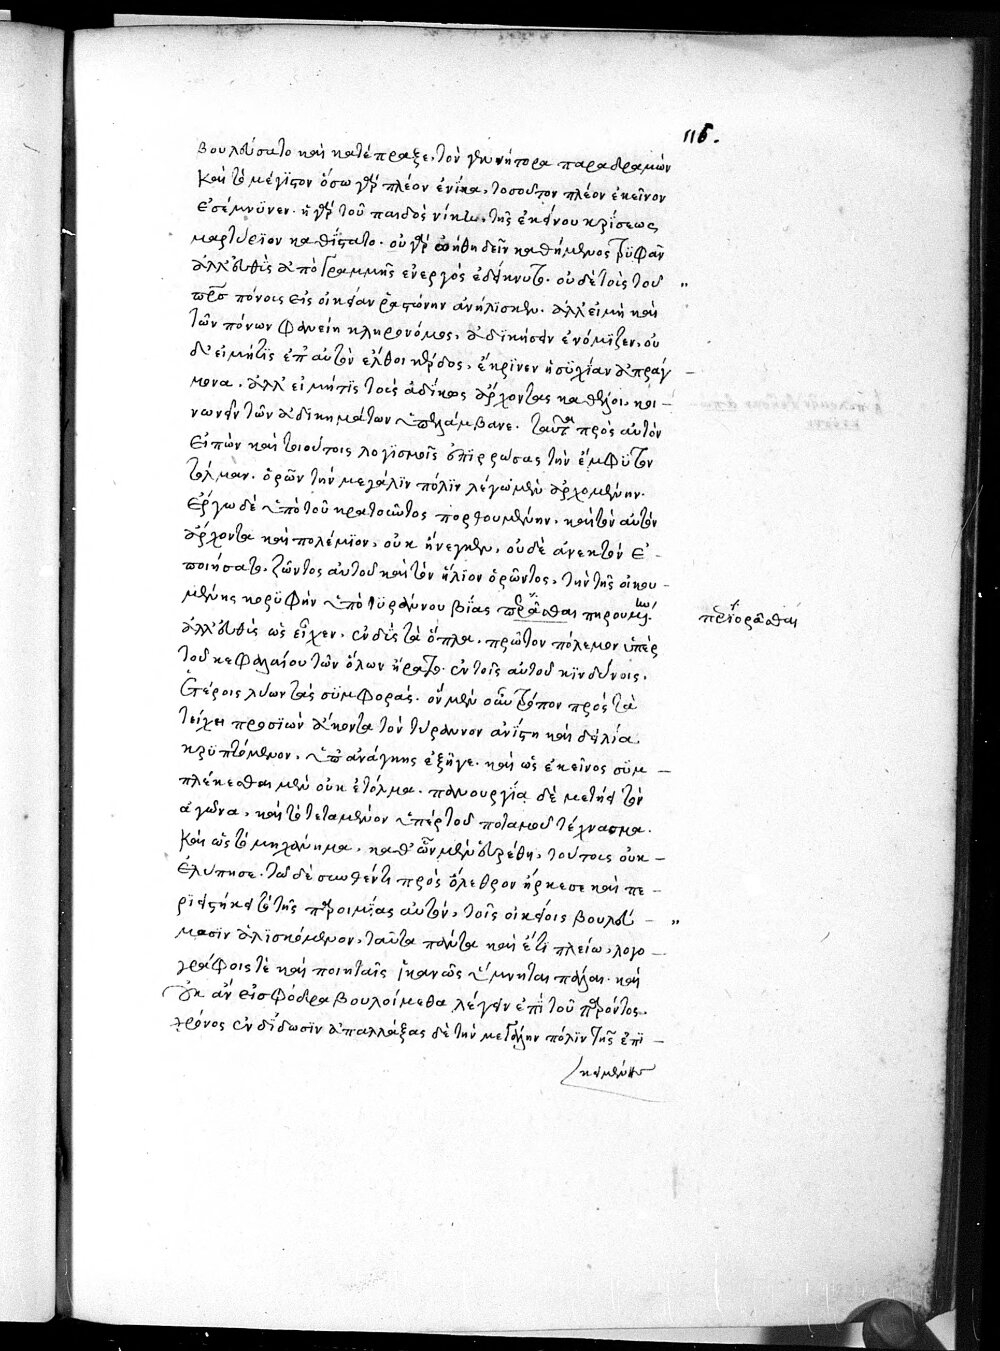 116.
βουλεύσατο καὶ κατέπραξε, τὸν γεννήτορα παραδραμὼν
καὶ τὸ μέγιστον ὅσω γὰρ πλέον ἐνίκα, τοσοῦτον πλέον ἐκεῖνον
ἐσέμνυνεν. ἡ γὰρ τοῦ παιδὸς νίκη, τῆς ἐκείνου κρίσεως
μαρτύριον καθίστατο. οὐ γὰρ ᾠήθη δεῖν καθήμενος τρυφᾶν
ἀλλ' εὐθὺς ἀπὸ γραμμῆς ἐνεργὸς ἐδείκνυτο. οὐδὲ τοῖς τοῦ "
πρς πόνοις εἰς οἰκείαν ῥαστώνην ἀνήλισκεν. ἀλλ' εἰ μὴ καὶ
τῶν πόνων φανείη κληρονόμος, ἀδικῆσαι ἐνόμιζεν, οὐ
δ' εἰ μή τις ἐπ' αὐτὸν ἔλθοι κέρδος, ἔκρινεν ἡσυχίαν ἀπράγ –
μονα. ἀλλ' εἰ μή τις τοὺς ἀδίκως ἄρχοντας καθέλοι, κοι –
νωνεῖν τῶν ἀδικημάτων ὑπελάμβανε. ταῦτα πρὸς αὐτὸν
εἰπὼν καὶ τοιούτοις λογισμοῖς ἐπιρρώσας τὴν ἔμφυτον
τόλμαν. ὁρῶν τὴν μεγάλην πόλιν λέγω μὲν ἀρχομένην.
ἔργω δὲ ὑπὸ τοῦ κρατοῦντος πορθουμένην, καὶ τὸν αὐτὸν
ἄρχοντα καὶ πολέμιον, οὐκ ἤνεγκεν, οὐδὲ ἀνεκτὸν ἐ –
ποιήσατο, ζῶντος αὐτοῦ καὶ τὸν ἥλιον ὁρῶντος, τὴν τῆς οἰκου –
μένης κορυφὴν ὑπὸ τυράννου βίας πηρουμέν.
ἀλλ' εὐθὺς ὡς εἶχεν, ἐνδὺς τὰ ὅπλα, πρῶτον πόλεμον ὑπὲρ
τοῦ κεφαλαίου τῶν ὅλων ἤρατο. ἐν τοῖς αὐτοῦ κινδύνοις,
ἑτέροις λύων τὰς συμφοράς. ὃν μὲν οὖν τρόπον πρὸς τὰ
τείχει προσιὼν ἄκοντα τὸν τύραννον ἀνίστη καὶ δειλία
κρυπτόμενον, ὑπ' ἀνάγκης ἐξῆγε. καὶ ὡς ἐκεῖνος συμ –
πλέκεσθαι μὲν οὐκ ἐτόλμα. πανουργία δὲ μετῄει τὸν
ἀγῶνα, καὶ τὸ τεταμένον ὑπὲρ τοῦ ποταμοῦ τέχνασμα.
καὶ ὡς τὸ μηχάνημα, καθ' ὧν μὲν εὑρέθη, τούτοις οὐκ –
ἐλύπησε. τῶ δὲ συνθέντι πρὸς ὄλεθρον ἤρκεσε καὶ πε –
ριειστήκει τὸ τῆς παροιμίας αὐτὸν, τοῖς οἰκείοις βουλεύ – "
μασιν ἁλισκόμενον, ταῦτα πάντα καὶ ἔτι πλείω, λογο –
γράφοις τὲ καὶ ποιηταῖς ἱκανῶς ὕμνηται πάλαι. καὶ
οὐκ ἂν εἰ σφόδρα βουλοίμεθα λέγειν ἐπὶ τοῦ παρόντος
χρόνος ἐνδίδωσιν ἀπαλλάξας δὲ τὴν μεγάλην πόλιν τῆς ἐπι –
κειμένης